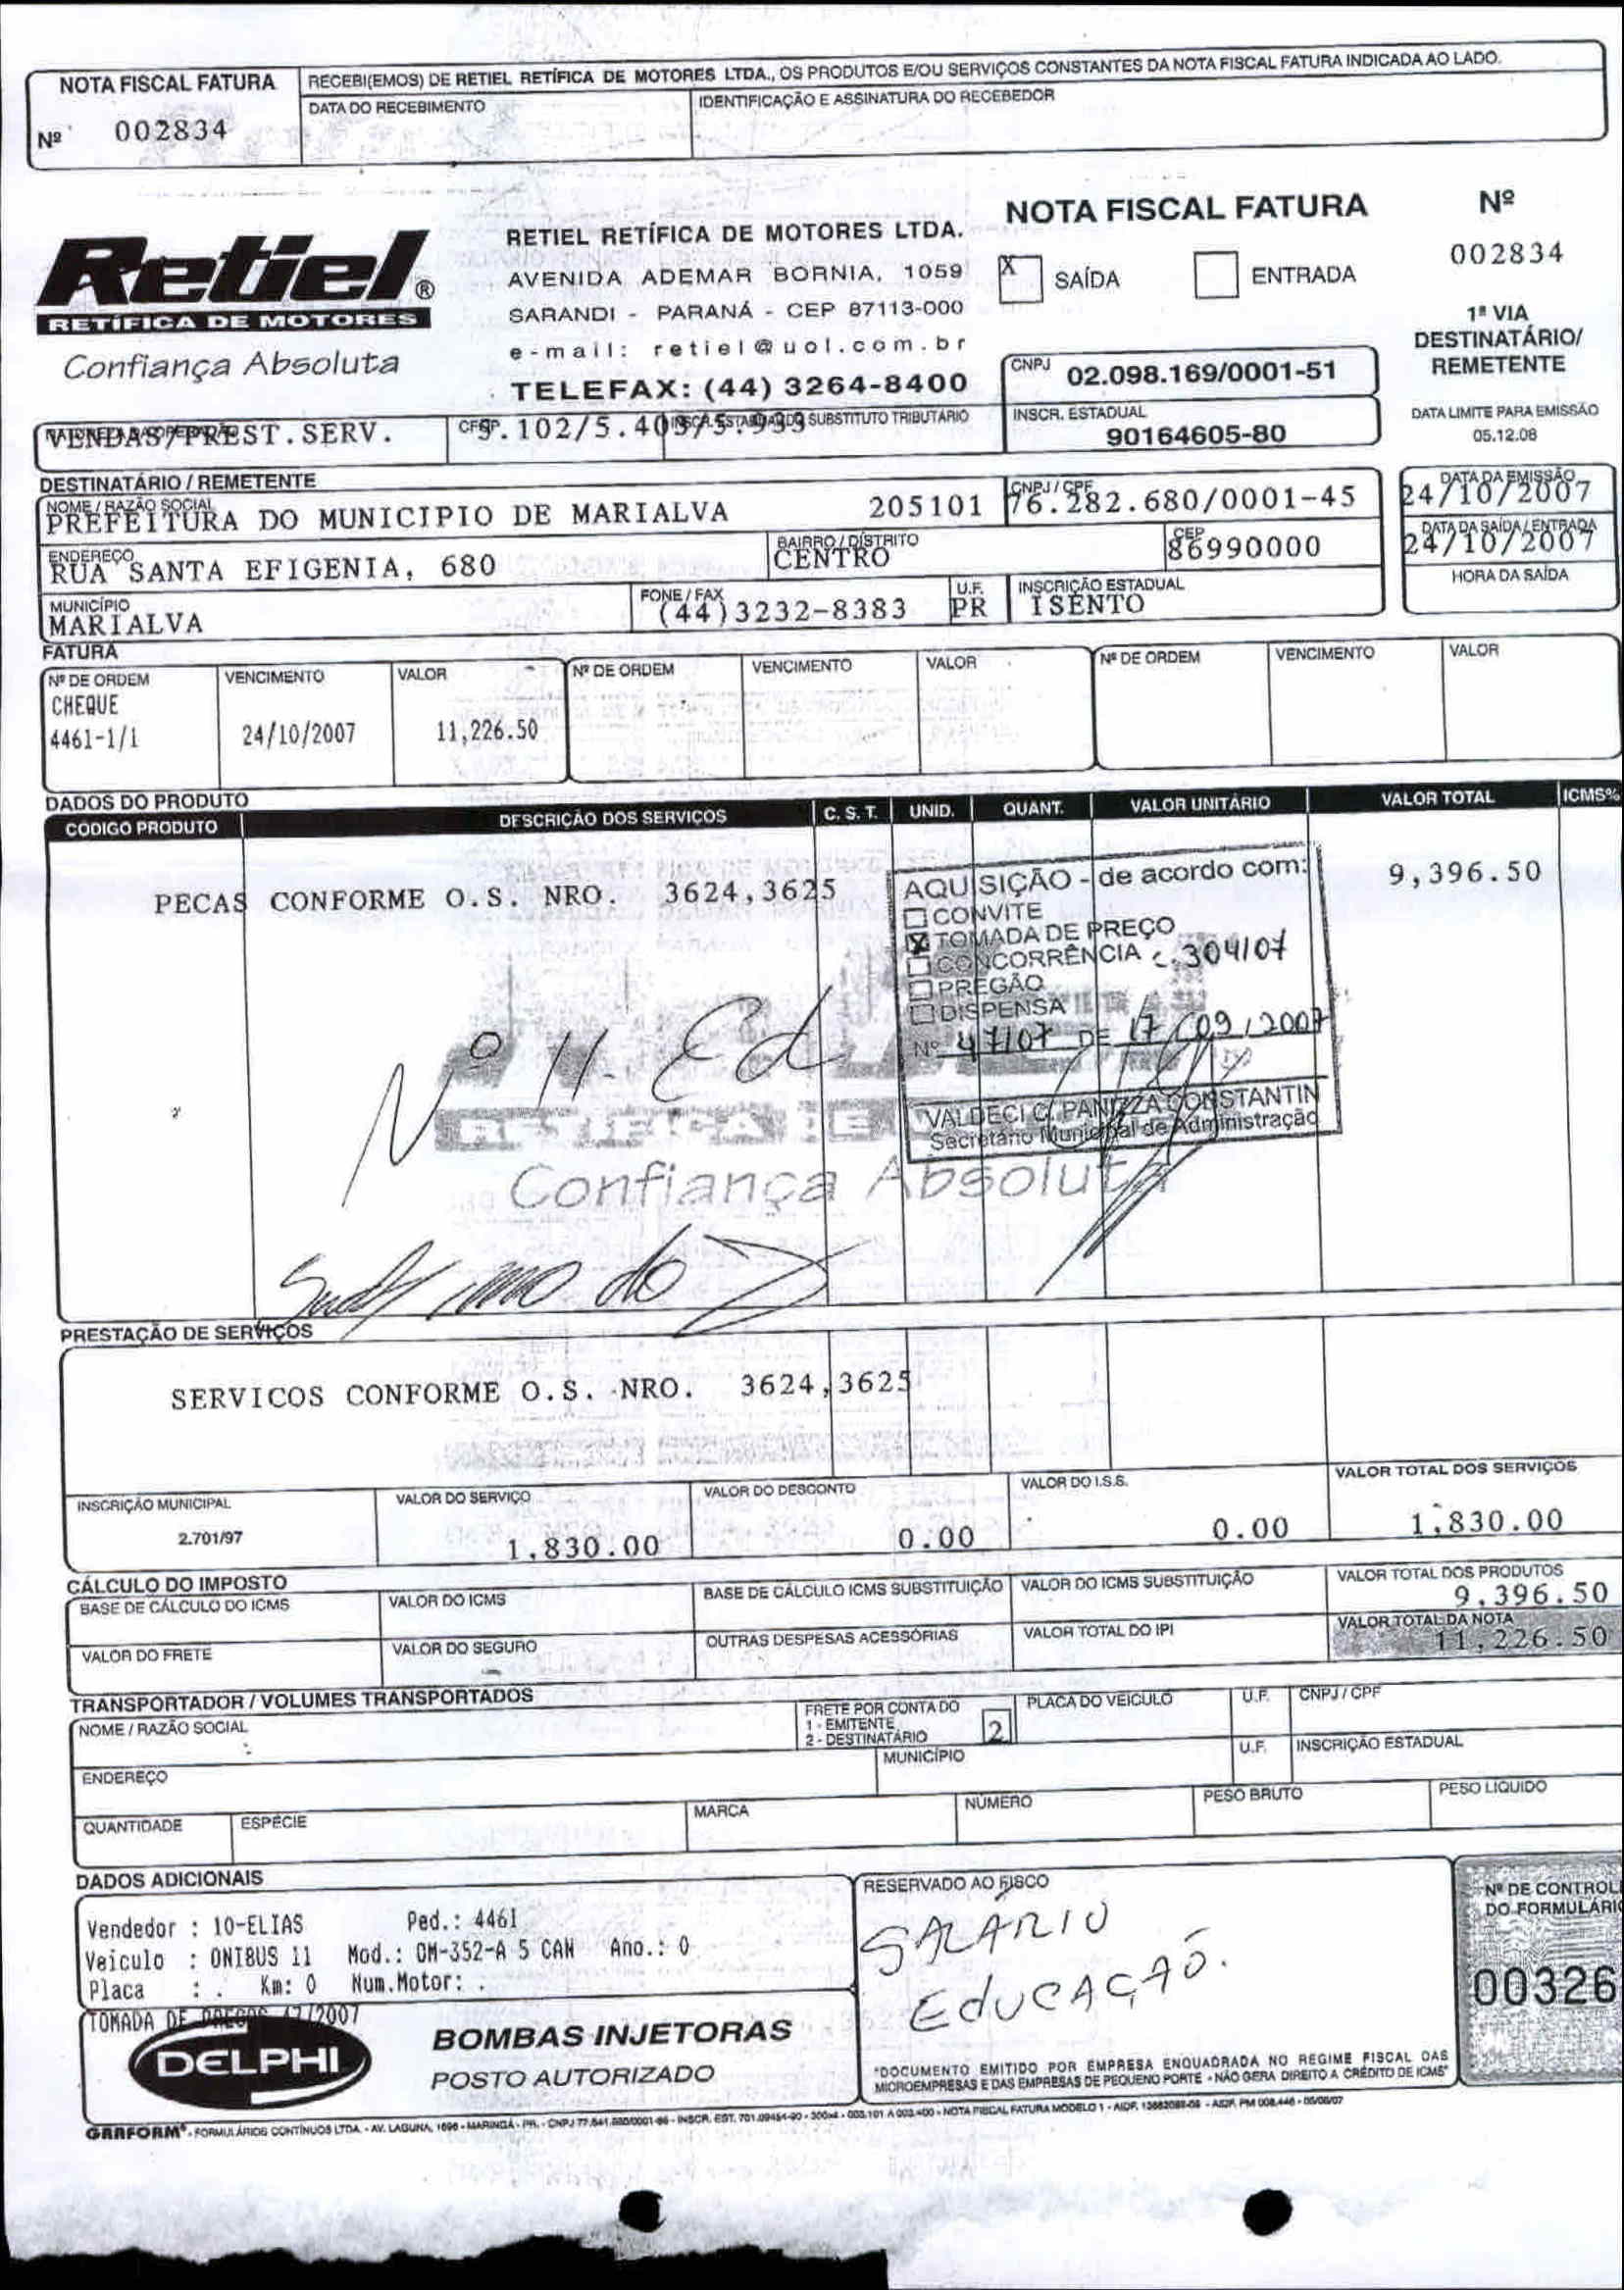 NOTA FISCAL FATURA
Nº 002834
RECEBI(EMOS) DE RETIEL RETÍFICA DE MOTORES LTDA., OS PRODUTOS E/OU SERVIÇOS CONSTANTES DA NOTA FISCAL FATURA INDICADA AO LADO.
DATA DO RECEBIMENTO
IDENTIFICAÇÃO E ASSINATURA DO RECEBEDOR
Retiel ®
RETÍFICA DE MOTORES
Confiança Absoluta
RETIEL RETÍFICA DE MOTORES LTDA.
AVENIDA ADEMAR BORNIA, 1059
SARANDI - PARANÁ - CEP 87113-000
e-mail: retiel@uol.com.br
TELEFAX: (44) 3264-8400
NOTA FISCAL FATURA
X SAÍDA ENTRADA
Nº
002834
1ª VIA
DESTINATÁRIO/
REMETENTE
DATA LIMITE PARA EMISSÃO
05.12.08
CNPJ 02.098.169/0001-51
INSCR. ESTADUAL
90164605-80
VENDAS/PREST.SERV.
CFOP 5.102/5.405/5.933
SUBSTITUTO TRIBUTÁRIO
DESTINATÁRIO / REMETENTE
NOME / RAZÃO SOCIAL
PREFEITURA DO MUNICIPIO DE MARIALVA 205101
CNPJ / CPF
76.282.680/0001-45
DATA DA EMISSÃO
24/10/2007
ENDEREÇO
RUA SANTA EFIGENIA, 680
BAIRRO / DISTRITO
CENTRO
CEP
86990000
DATA DA SAÍDA / ENTRADA
24/10/2007
MUNICÍPIO
MARIALVA
FONE / FAX
(44)3232-8383
U.F.
PR
INSCRIÇÃO ESTADUAL
ISENTO
HORA DA SAÍDA
FATURA
Nº DE ORDEM VENCIMENTO VALOR Nº DE ORDEM VENCIMENTO VALOR Nº DE ORDEM VENCIMENTO VALOR
CHEQUE
4461-1/1 24/10/2007 11,226.50
DADOS DO PRODUTO
CÓDIGO PRODUTO DESCRIÇÃO DOS SERVIÇOS C. S. T. UNID. QUANT. VALOR UNITÁRIO VALOR TOTAL ICMS%
PECAS CONFORME O.S. NRO. 3624,3625 9,396.50
AQUISIÇÃO - de acordo com:
CONVITE
X TOMADA DE PREÇO
CONCORRÊNCIA c. 304/07
PREGÃO
DISPENSA
Nº 47/07 DE 17/09/2007
VALDECI C. PANIZZA CONSTANTIN
Secretário Municipal de Administração
Nº 11 - Ed
Confiança Absoluta
PRESTAÇÃO DE SERVIÇOS
SERVICOS CONFORME O.S. NRO. 3624,3625
INSCRIÇÃO MUNICIPAL
2.701/97
VALOR DO SERVIÇO
1,830.00
VALOR DO DESCONTO
0.00
VALOR DO I.S.S.
0.00
VALOR TOTAL DOS SERVIÇOS
1,830.00
CÁLCULO DO IMPOSTO
BASE DE CÁLCULO DO ICMS
VALOR DO ICMS
BASE DE CÁLCULO ICMS SUBSTITUIÇÃO
VALOR DO ICMS SUBSTITUIÇÃO
VALOR TOTAL DOS PRODUTOS
9,396.50
VALOR DO FRETE
VALOR DO SEGURO
OUTRAS DESPESAS ACESSÓRIAS
VALOR TOTAL DO IPI
VALOR TOTAL DA NOTA
11,226.50
TRANSPORTADOR / VOLUMES TRANSPORTADOS
NOME / RAZÃO SOCIAL
FRETE POR CONTA DO
1 - EMITENTE
2 - DESTINATÁRIO
2
PLACA DO VEÍCULO
U.F.
CNPJ / CPF
ENDEREÇO
MUNICÍPIO
U.F.
INSCRIÇÃO ESTADUAL
QUANTIDADE
ESPÉCIE
MARCA
NÚMERO
PESO BRUTO
PESO LÍQUIDO
DADOS ADICIONAIS
Vendedor : 10-ELIAS Ped.: 4461
Veiculo : ONIBUS 11 Mod.: OM-352-A 5 CAN Ano.: 0
Placa : . Km: 0 Num.Motor: .
TOMADA DE PRECOS 47/2007
DELPHI
BOMBAS INJETORAS
POSTO AUTORIZADO
RESERVADO AO FISCO
SALÁRIO
EDUCAÇÃO.
"DOCUMENTO EMITIDO POR EMPRESA ENQUADRADA NO REGIME FISCAL DAS
MICROEMPRESAS E DAS EMPRESAS DE PEQUENO PORTE - NÃO GERA DIREITO A CRÉDITO DE ICMS"
Nº DE CONTROL
DO FORMULÁRI
00326
GRAFORM - FORMULÁRIOS CONTÍNUOS LTDA. - AV. LAGUNA, 1696 - MARINGÁ - PR.
NOTA FISCAL FATURA MODELO 1